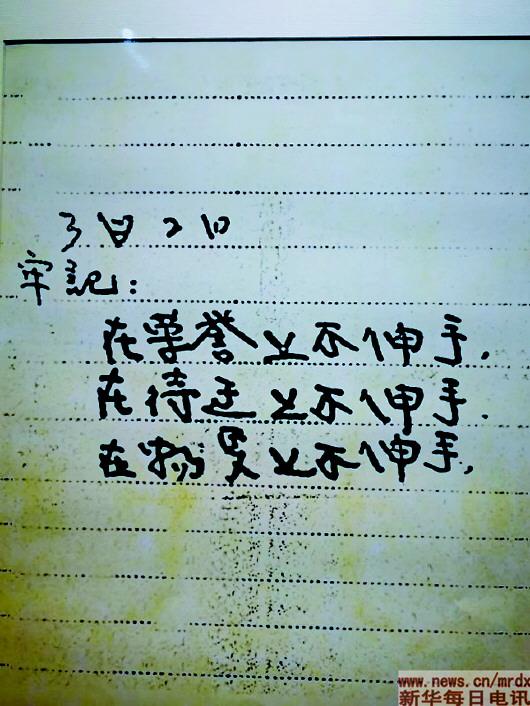 3月2日
牢記:
在荣誉上不伸手.
在待遇上不伸手.
在物质上不伸手,
www.news.cn/mrdx
新华每日电讯